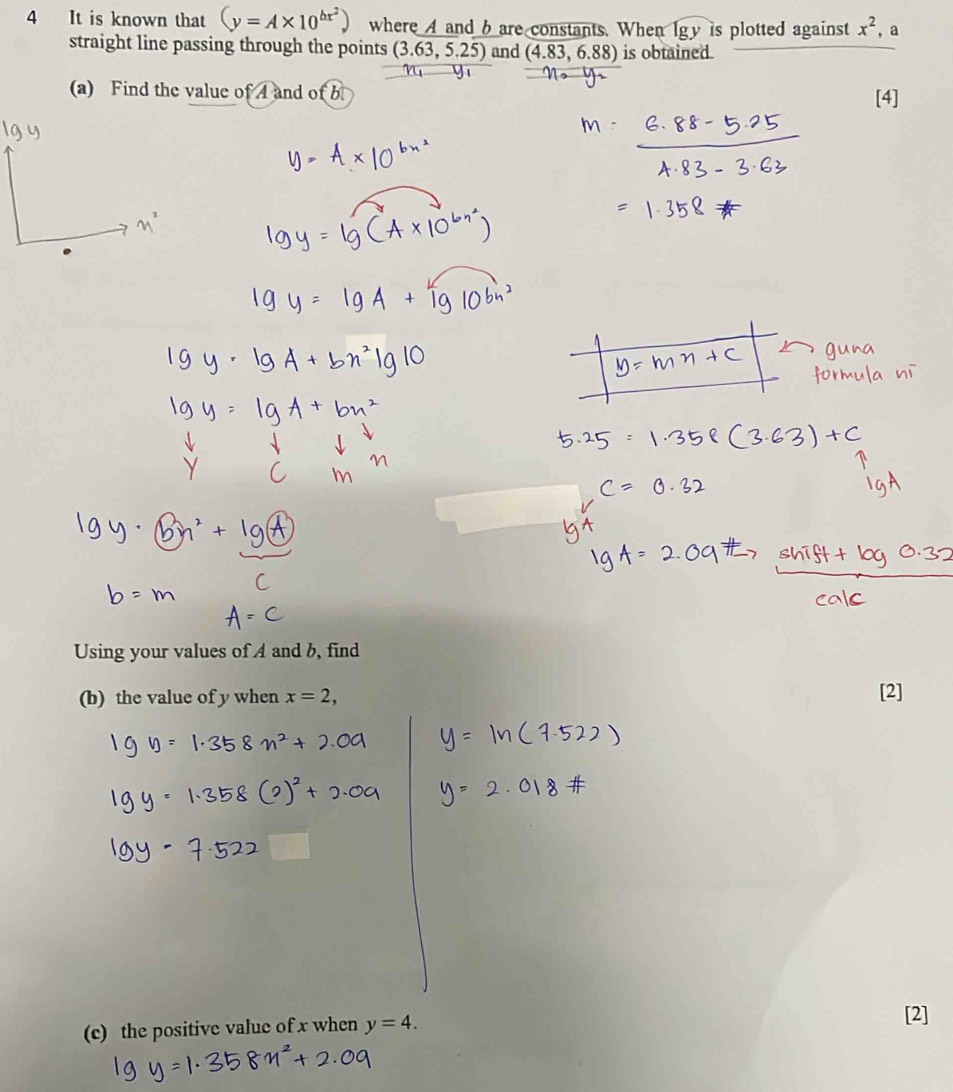 4 It is known that (y = A × 10^{bx²}) where A and b are constants. When lgy is plotted against x², a
straight line passing through the points (3.63, 5.25) and (4.83, 6.88) is obtained.
x₁ y₁ x₂ y₂
(a) Find the value of A and of b. [4]
lg y
x²
y = A × 10^{bx²}
lg y = lg (A × 10^{bx²})
lg y = lg A + lg 10^{bx²}
lg y = lg A + bx² lg 10
lg y = lg A + bx²
Y C m x
lg y = bx² + lg A
C
b = m
A = C
m = (6.88 - 5.25) / (4.83 - 3.63)
= 1.358 #
y = mx + c
guna
formula ni
5.25 = 1.358 (3.63) + C
lgA
C = 0.32
lgA
lg A = 2.09 # → shift + log 0.32
calc
Using your values of A and b, find
(b) the value of y when x = 2, [2]
lg y = 1.358 x² + 2.09
lg y = 1.358 (2)² + 2.09
lg y = 7.522
y = ln (7.522)
y = 2.018 #
(c) the positive value of x when y = 4. [2]
lg y = 1.358x² + 2.09